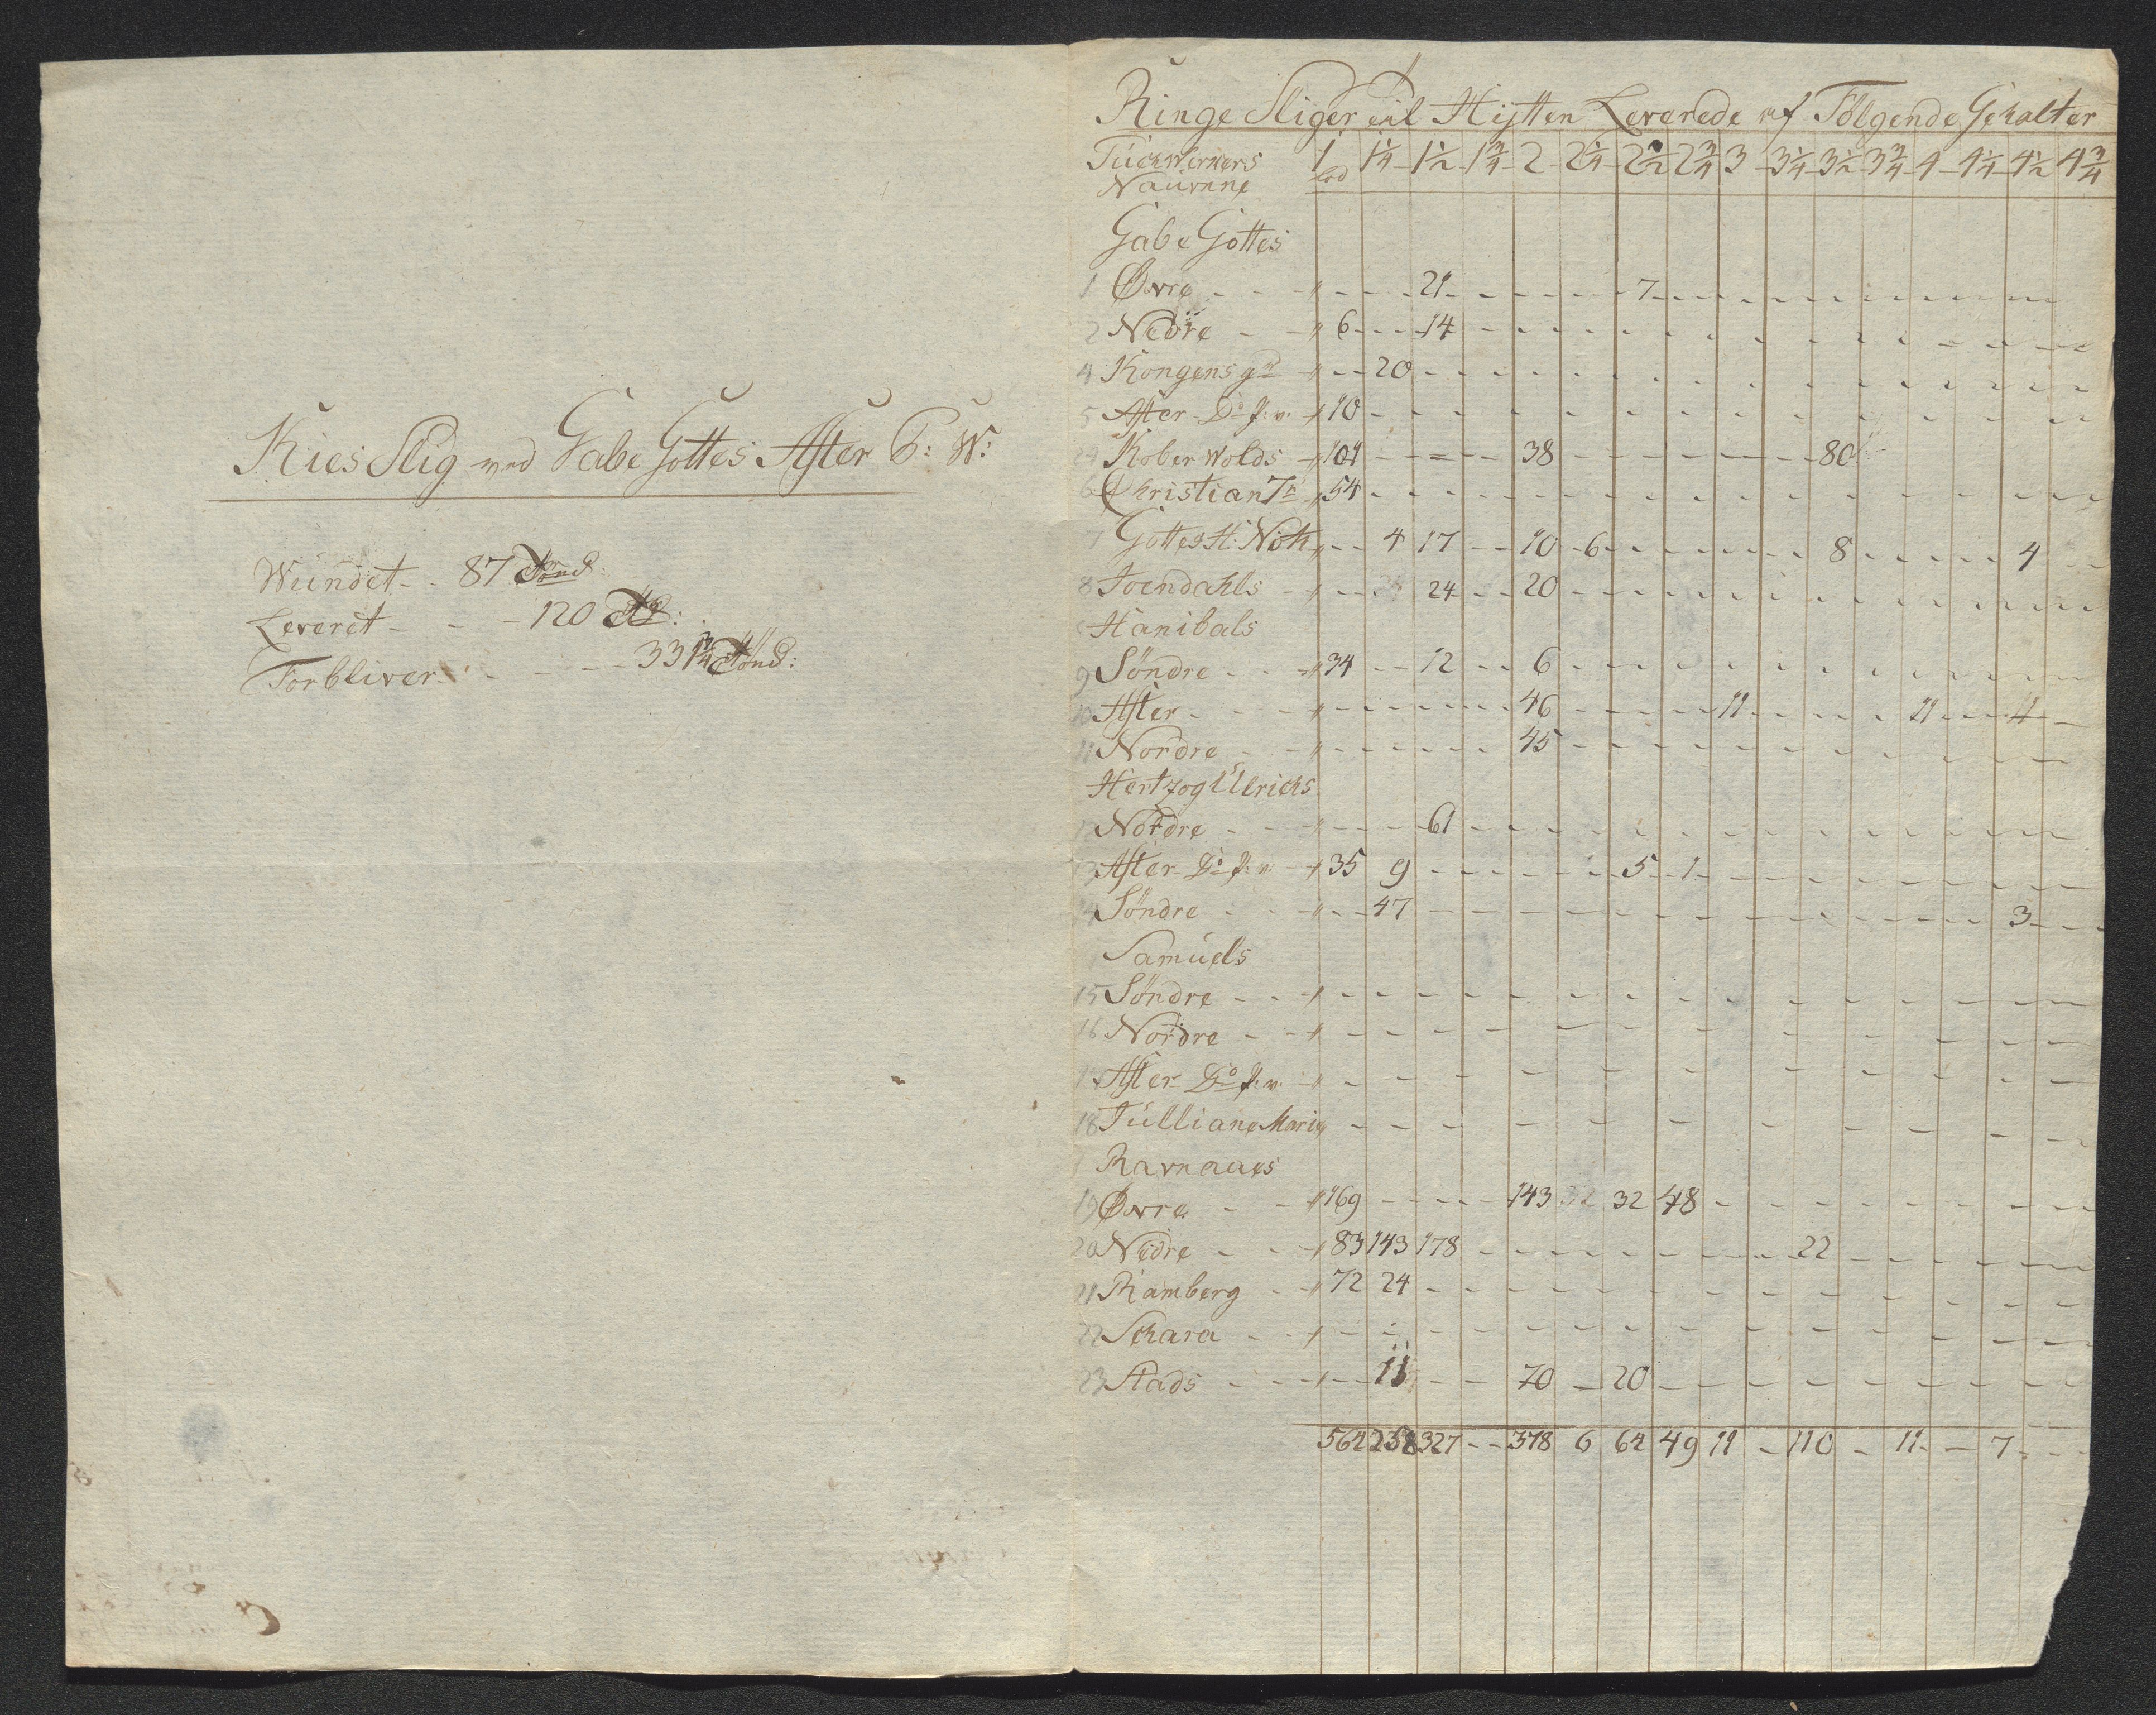 Kies Slig ved Gabe Gottes After P: W:
Wundet - - 87 Tönd:
Leveret - - - 120
Forbliver - - - 331¾ Tönd:
Ringe Sliger til Hÿtten Leverede af Fölgende Gehalter
Püchwerkers Naufnne 1 lod 1¼ 1½ 1¾ 2 2¼ 2½ 2¾ 3 3¼ 3½ 3¾ 4 4¼ 4½ 4¾
Gabe Gottes
1 Øvre - - 〃 - - - 21 - - - - - 7 - - - - - - - - -
2 Nedre - - 〃 6 - - - 14 - - - - - - - - - - - -
4 Kongens gr - 〃 - - 20 - - - - - - - - - - - -
5 After Do P: v: - 〃 10 - - - - - - - - - - - -
24 Kober Wolds - 〃 101 - - = - - 38 - - - - - - - 80
6 Christian 7n 〃 54 - - - - - - - - - - - - -
7 Gottes H: Noth 〃 - - 4 17 - - 10 - 6 - - - - - - 8 - - - - - 4 - -
8 Joendahls - 〃 - - - 24 - - 20 - - - - - - - - - - -
Hanibals
9 Söndre - - - 〃 34 - - 12 - - 6 - - - - - - - - - - -
10 After - - - 〃 - - - - - - - 46 - - - - - 11 - - - - - 11 - - - 4 -
11 Nordre - - 〃 - - - - - - 45 - - - - - - - - - - -
Hertzog Ulrichs
12 Nordre - - - 〃 - - - 61 - - - - - - - - - - - -
13 After Do P: v: - 〃 35 9 - - - - - - 5 - 1 - - - - - - - - -
14 Söndre - - - 〃 - - 47 - - - - - - - - - - - - 3 - - -
Samuels
15 Söndre - - - 〃 - - - - - - - - - - - - - - - -
16 Nordre - - - 〃 - - - - - - - - - - - - -
17 After Do P: v: - 〃 - - - - - - - - - - -
18 Julliane Marie - - - - - - - - - - -
Ravnaaes
19 Øvre - - 〃 169 - - - - - 143 32 32 48 - - - - - - - - -
20 Nedre - - - 〃 83 143 178 - - - - - - - - - 22 - - - - - -
21 Ramberg - - 〃 72 24 - - - - - - - - - - - - -
22 Schara - - 〃 - - - - - - - - - - - - - - -
23 Stads - - - 〃 - - 11 - - 70 - 20 - - - - - - - - -
564 258 327 - - 378 6 64 49 11 - 110 - 11 - - 7 - - -